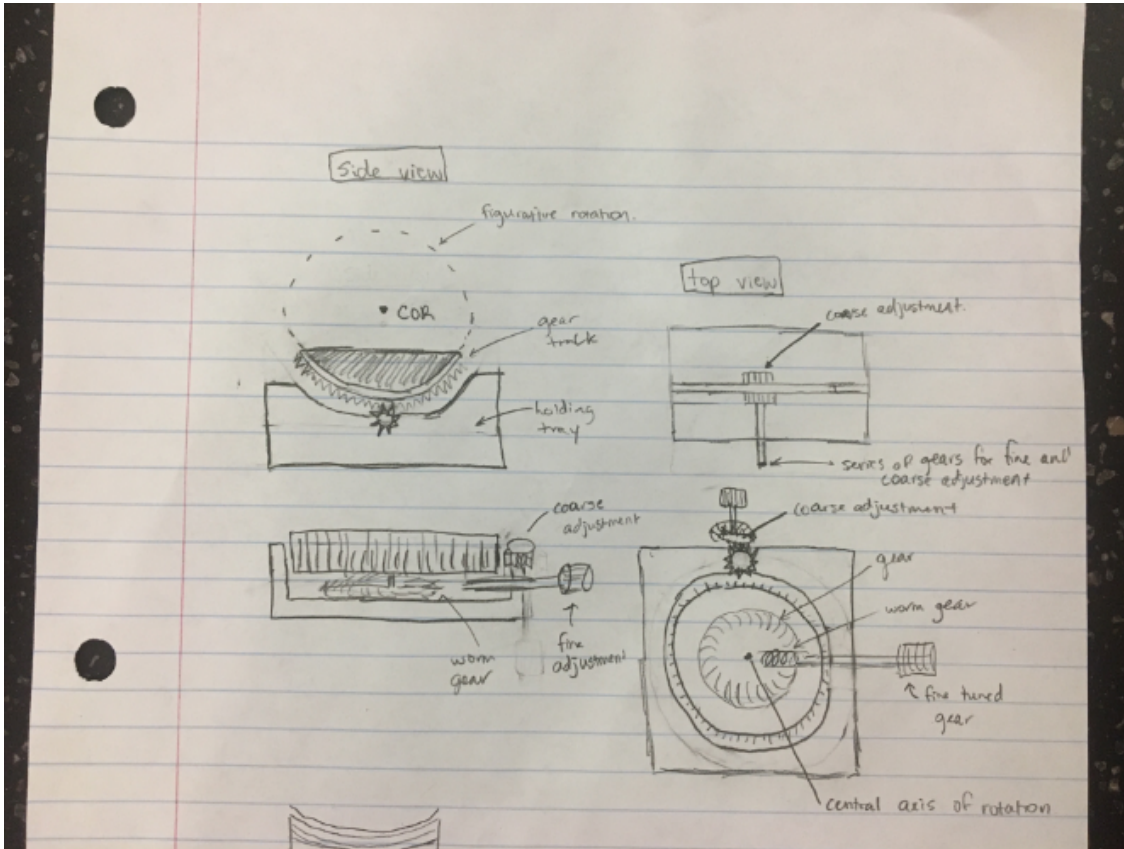 side view
figurative rotation.
COR
gear
track
holding
tray
top view
coarse adjustment.
series of gears for fine and
coarse adjustment
coarse
adjustment
worm
gear
fine
adjustment
coarse adjustment
gear
worm gear
fine tuned
gear
central axis of rotation